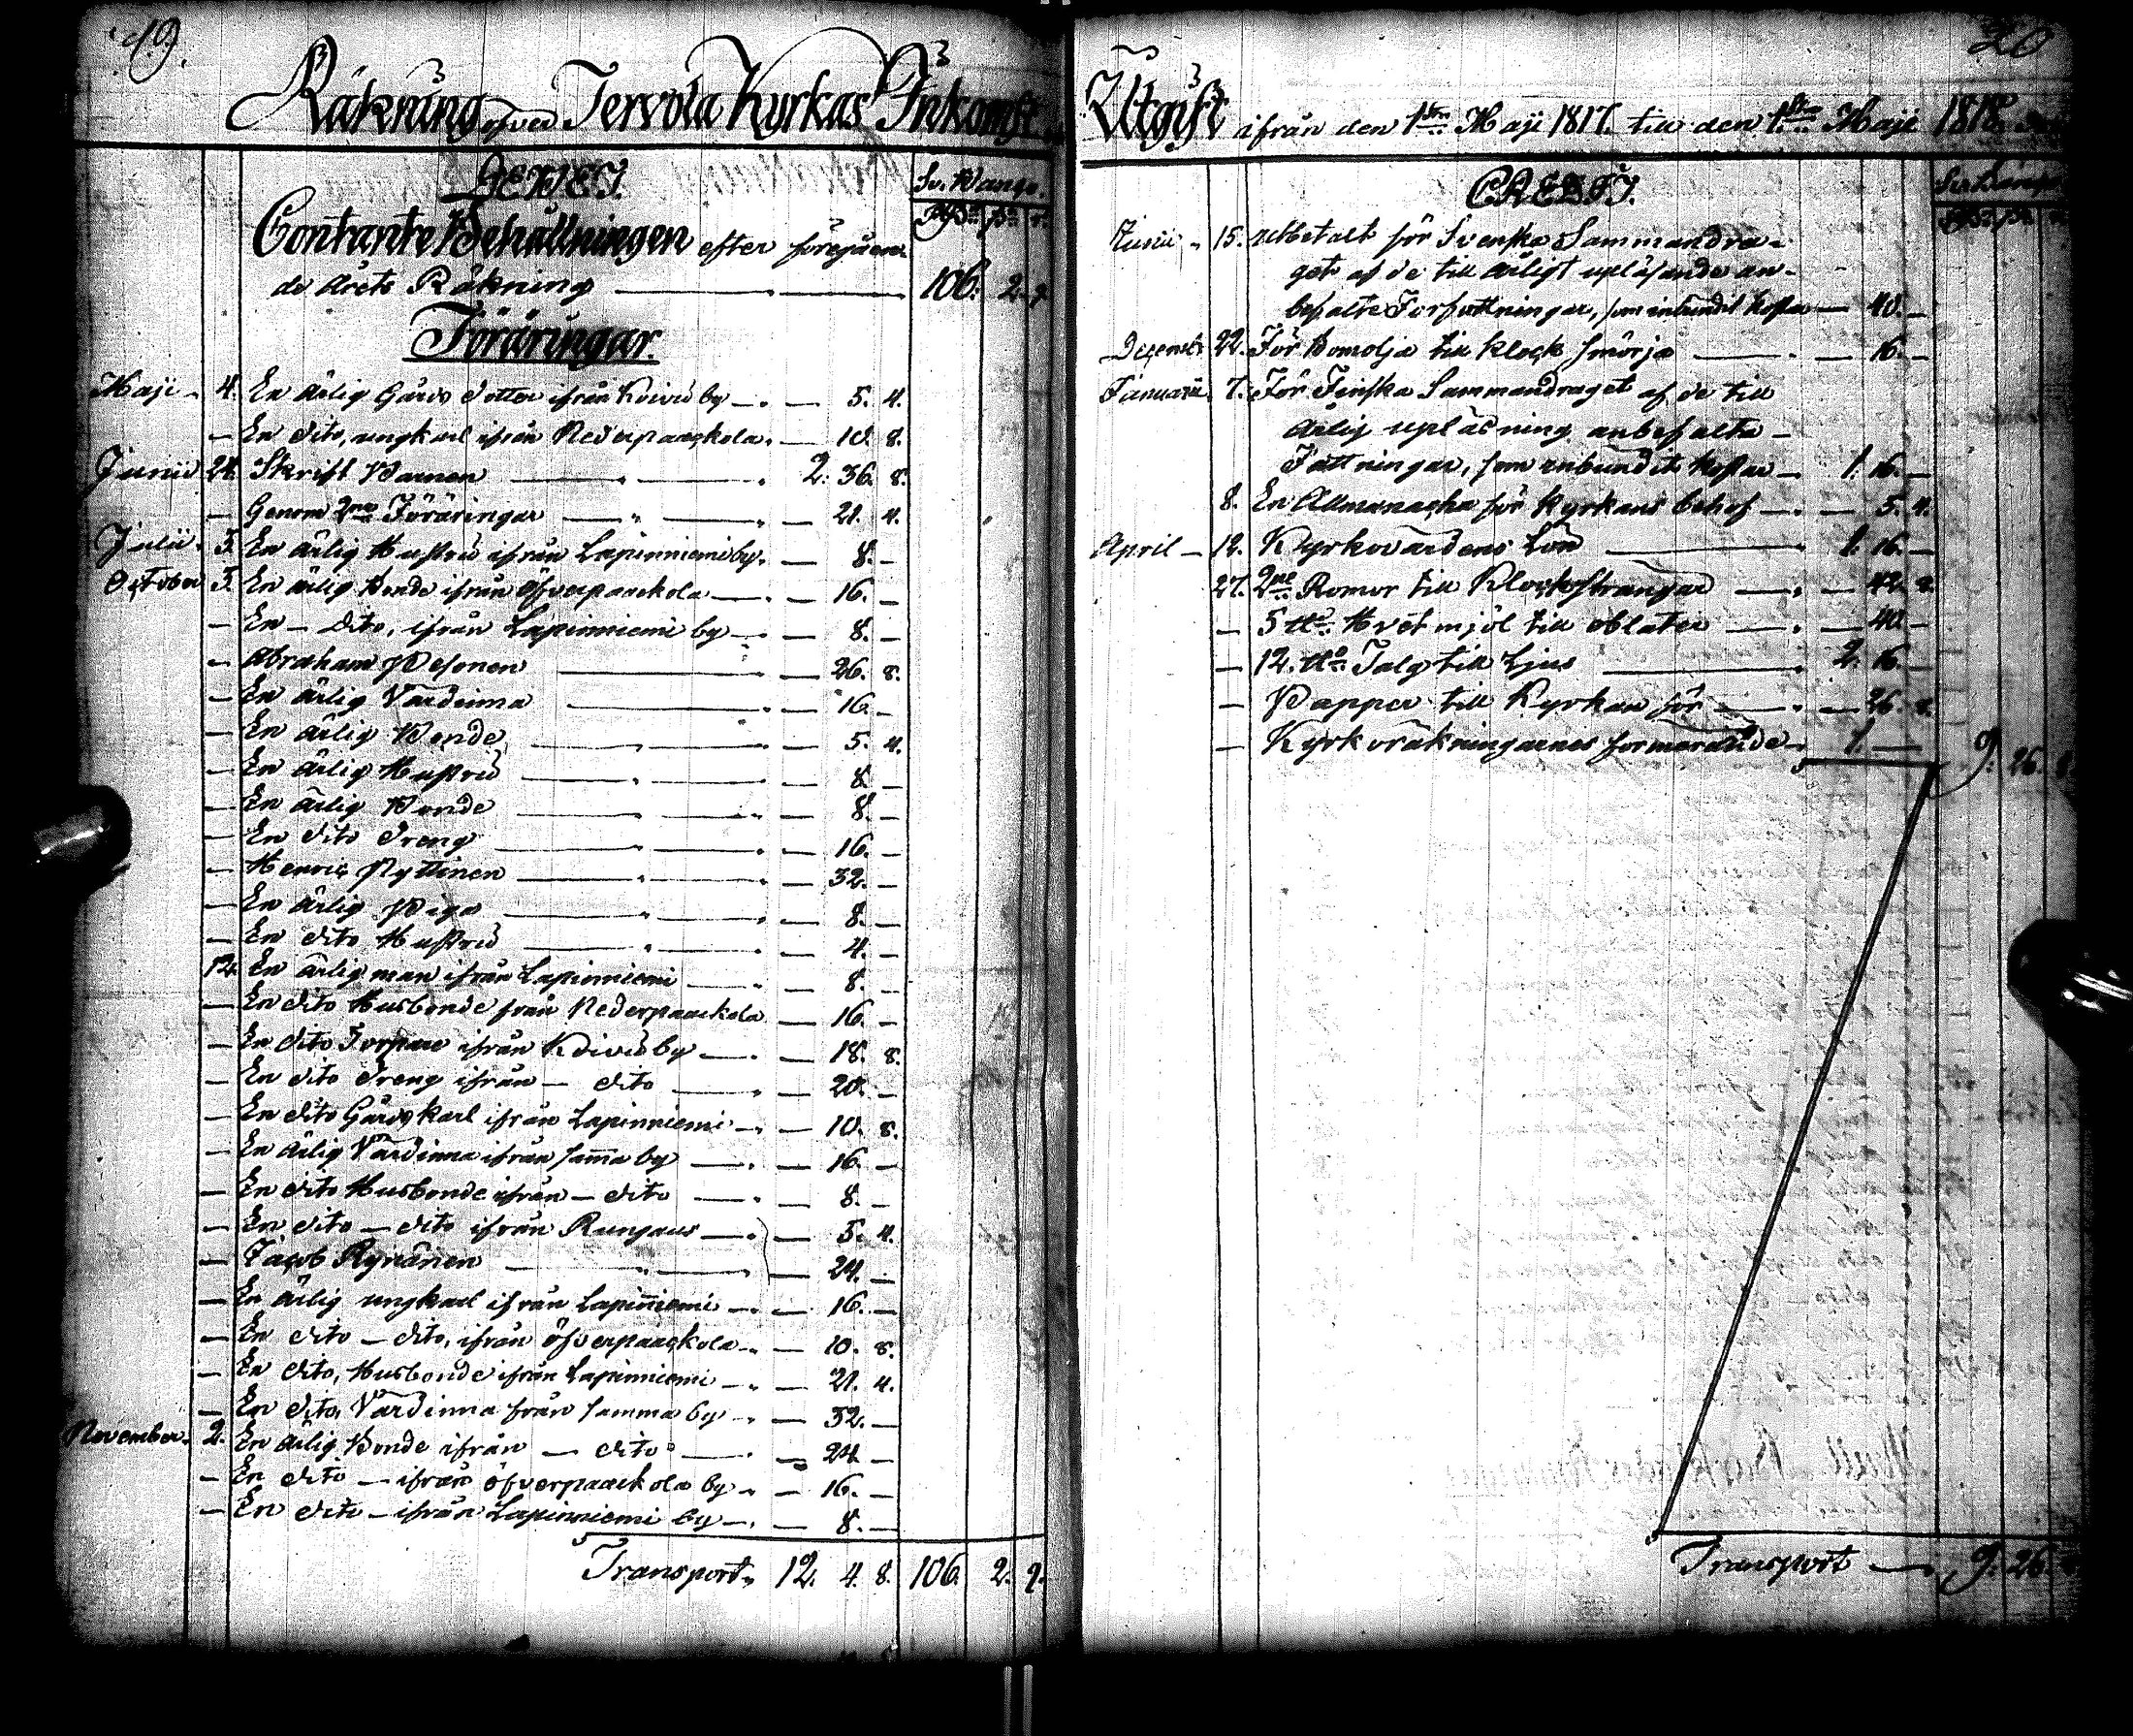 19.
Räkning öfver Tervola Kyrkas Inkomst
DEBET.
Sv. Banco.
Contante Behållningen efter föregåen-
de Årets Räkning — 106. 2. 9.
Föräringar.
Maji 4. En ärlig Gårds dotter ifrån Koivu by — 5. 4.
— En dito, ungkarl ifrån Nederpaackola — 10. 8.
Junii 24. Skrift Barnen — 2. 36. 8.
— Genom 2ne Föräringar — 21. 4.
Julii 3. En ärlig Hustru ifrån Lapinniemi by — 8. —
October 5. En ärlig Bonde ifrån Öfverpaackola — 16. —
— En — dito, ifrån Lapinniemi by — 8. —
— Abraham — 26. 8.
— En ärlig Värdinna — 16. —
— En ärlig Bonde — 5. 4.
— En ärlig Hustru — 8. —
— En ärlig Bonde — 8. —
— En dito Dreng — 16. —
— Henric Ryttinen — 32. —
— En ärlig Piga — 8. —
— En dito Hustru — 4. —
12. En ärlig man ifrån Lapinniemi — 8. —
— En dito Husbonde från Nederpaackola — 16. —
— En dito Torpare ifrån Koivu by — 18. 8.
— En dito Dreng ifrån — dito — 20. —
— En dito Gårdskarl ifrån Lapinniemi — 10. 8.
— En ärlig Värdinna ifrån samma by — 16. —
— En dito Husbonde ifrån — dito — 8. —
— En dito — dito ifrån Rungaus — 5. 4.
— Jacob Rynänen — 24. —
— En ärlig ungkarl ifrån Lapinniemi — 16. —
— En dito — dito, ifrån Öfverpaackola — 10. 8.
— En dito, Husbonde ifrån Lapinniemi — 21. 4.
— En dito, Värdinna från samma by — 32. —
November 2. En ärlig Bonde ifrån — dito — 24. —
— En dito — ifrån Öfverpaackola by — 16. —
— En dito — ifrån Lapinniemi by — 8. —
Transport 12. 4. 8. 106. 2. 9.
20
Utgift ifrån den 1sta Maji 1817. till den 1sta Maji 1818.
CREDIT.
Junii 15. utbetalt för Svenska Sammandra-
get af de till årligt upläsande an-
befalte Författningar, som inbundit kostar — 40. —
Decemb. 22. För Bomolja till klock smörja — 16. —
Januarii 7. För Finska Sammandraget af de till
årlig upläsning anbefalta
Fattningar, som inbundit kostar — 1. 16. —
8. En Allmanacka för Kyrkans behof — 5. 4.
April 12. Kyrkovärdens Lön — 1. 16. —
27. 2ne Romor till Klockstrangar — 42. 8.
— 5 ℔ Hvetmjöl till oblater — 40. —
— 12. ℔ Talg till Ljus — 2. 16. —
— Papper till Kyrkan för — 26. 8.
— Kyrkoräkningarnes formerande — 1. — 9. 26. 8.
Transport — 9. 26.